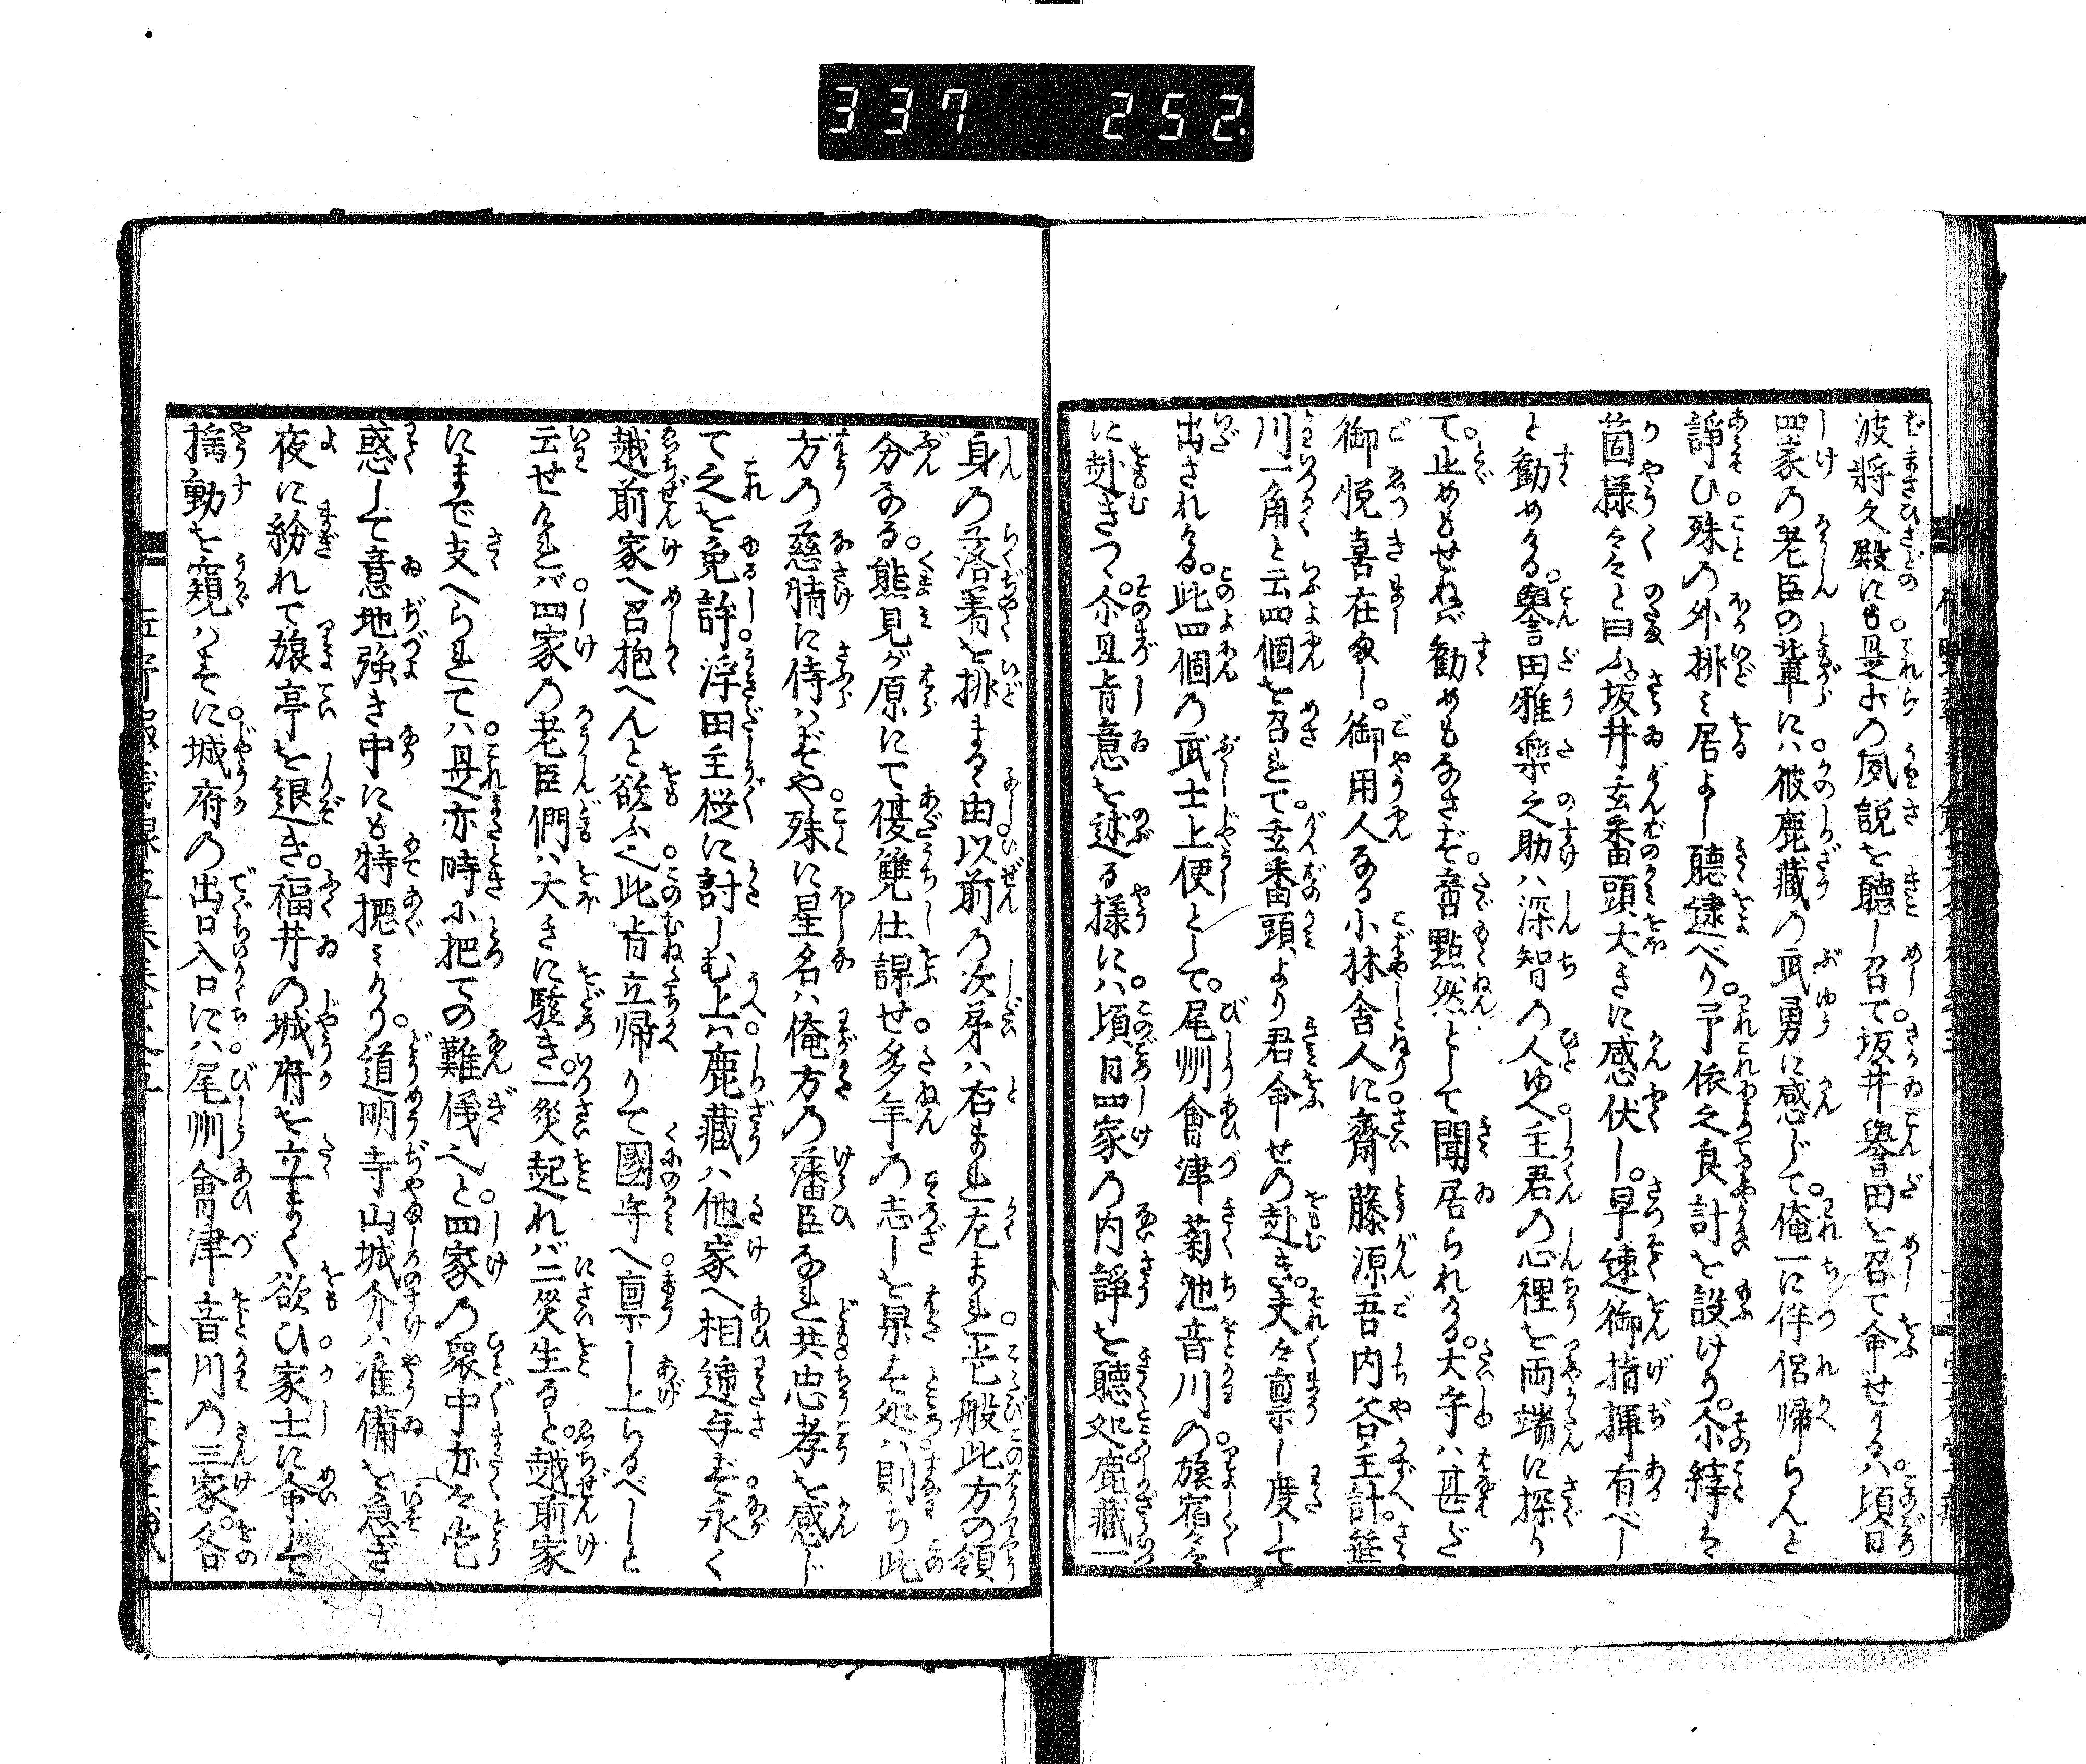 337 252.
波將久殿にも是等の風説を聽し召て坂井譽田を召て命せらるハ頃日
四家の老臣の輩にハ彼鹿藏の武勇に感じて俺一に伴侶帰らんと
諍ひ殊の外排ミ居よし聽逮べり予依之良計を設けり尒縡ハ
箇様々々と曰ふ坂井玄番頭大きに感伏し早速御指揮有べし
と勸めける譽田雅樂之助ハ深智の人ゆへ主君の心裡を両端に探り
て止めもせねバ勸めもなさず啻默然として聞居られける大守ハ甚だ
御悦喜在まし御用人なる小林舎人に齋藤源吾内谷主計笹
川一角と云四個を召れて玄番頭より君命せの赴き夫々禀し度して
出されける此四個の武士上使として尾州會津菊池音川の旅宿々々
に赴きつゝ尒且肯意を述る様にハ頃日四家の内諍を聽処鹿藏一
身の落着を排まるゝ由以前の次第ハ右まれ左まれ壱般此方の領
分なる熊見が原にて復讐仕課せ多年の志しを果を処ハ則ち此
方の慈腩に侍ハずや殊に星名ハ俺方の藩臣なれ共忠孝を感じ
て之を免許浮田主従に討しむ上ハ鹿藏ハ他家へ相逓与ず永く
越前家へ召抱へんと欲ふ也此肯立帰りて國守へ禀し上らるべしと
云せけれバ四家の老臣們ハ大きに駭き一災起れバ二災生ると越前家
にまで支へられてハ是亦時に把ての難儀也と四家の衆中亦々當
惑して意地強き中にも特擾ミけり道明寺山城介ハ准備を急ぎ
夜に紛れて旅亭を退き福井の城府を立まく欲ひ家士に命じて
搖動を窺ハするに城府の出口入口にハ尾州會津音川の三家各